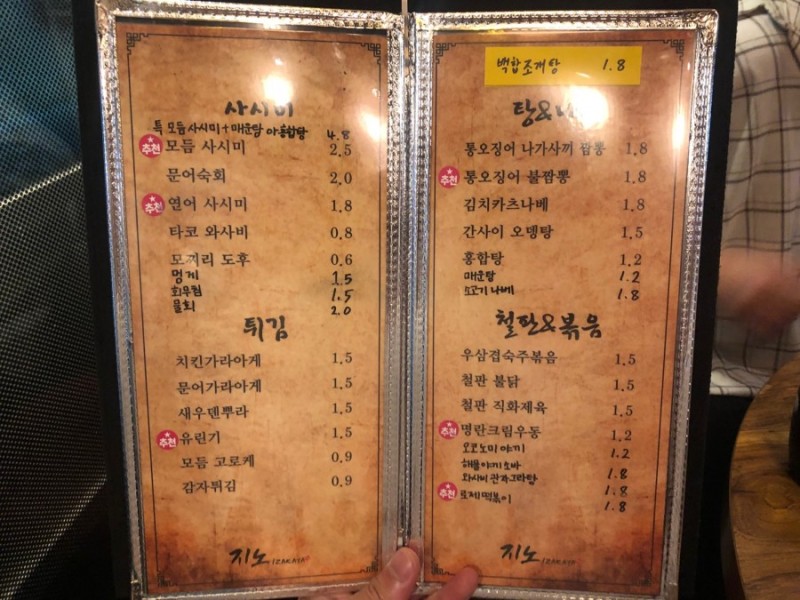 사시미
특 모듬사시미+매운탕 or 홍합탕 4.8
추천 모듬 사시미 2.5
문어숙회 2.0
추천 연어 사시미 1.8
타코 와사비 0.8
모찌리 도후 0.6
멍게 1.5
회무침 1.5
물회 2.0
튀김
치킨가라아게 1.5
문어가라아게 1.5
새우덴뿌라 1.5
추천 유린기 1.5
모듬 고로케 0.9
감자튀김 0.9
지노 IZAKAYA
백합조개탕 1.8
탕&
통오징어 나가사끼 짬뽕 1.8
추천 통오징어 불짬뽕 1.8
김치카츠나베 1.8
간사이 오뎅탕 1.5
홍합탕 1.2
매운탕 1.2
소고기 나베 1.8
철판&볶음
우삼겹숙주볶음 1.5
철판 불닭 1.5
철판 직화제육 1.5
추천 명란크림우동 1.2
오코노미 야끼 1.2
해물야끼소바 1.8
와사비 관자그라탕 1.8
추천 로제떡볶이 1.8
지노 IZAKAYA